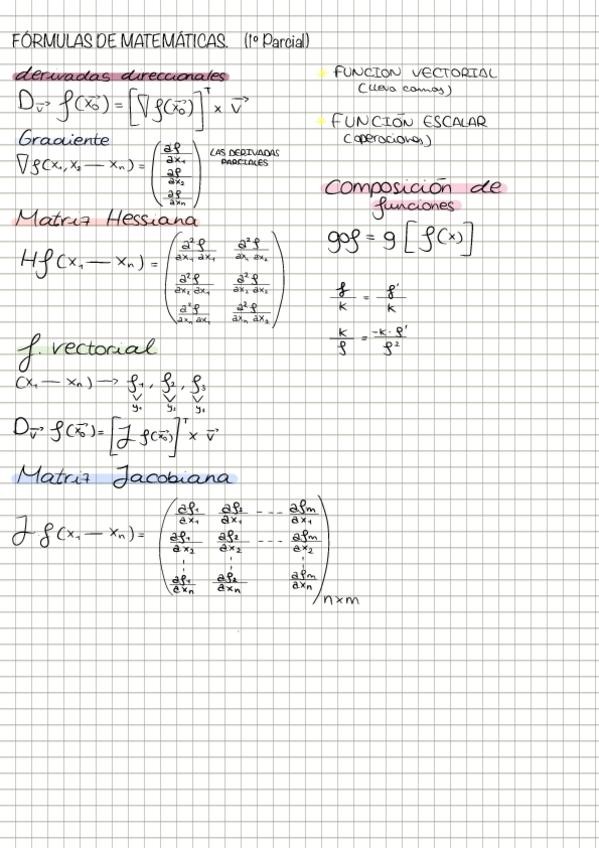 FÓRMULAS DE MATEMÁTICAS. (1º Parcial)
derivadas direccionales
D_v⃗ f(x⃗₀) = [∇f(x⃗₀)]^T × v⃗
Gradiente
∇f(x₁, x₂ — xₙ) = (∂f/∂x₁ ∂f/∂x₂ ∂f/∂xₙ) LAS DERIVADAS
PARCIALES
Matriz Hessiana
Hf(x₁ — xₙ) = (∂²f/∂x₁ ∂x₁ ∂²f/∂x₁ ∂x₂
∂²f/∂x₂ ∂x₁ ∂²f/∂x₂ ∂x₂
∂²f/∂xₙ ∂x₁ ∂²f/∂xₙ ∂x₂)
f. vectorial
(x₁ — xₙ) → f₁, f₂, f₃
y₁ y₂ y₃
D_v⃗ f(x⃗₀) = [J f(x⃗₀)]^T × v⃗
Matriz Jacobiana
J f(x₁ — xₙ) = (∂f₁/∂x₁ ∂f₂/∂x₁ --- ∂fm/∂x₁
∂f₁/∂x₂ ∂f₂/∂x₂ --- ∂fm/∂x₂
⋮ ⋮ ⋮
∂f₁/∂xₙ ∂f₂/∂xₙ ∂fm/∂xₙ) n×m
FUNCION VECTORIAL
(lleva comas)
FUNCIÓN ESCALAR
(operaciones)
Composición de
funciones
g∘f = g [f(x)]
f/k = f'/k
k/f = -k·f'/f²